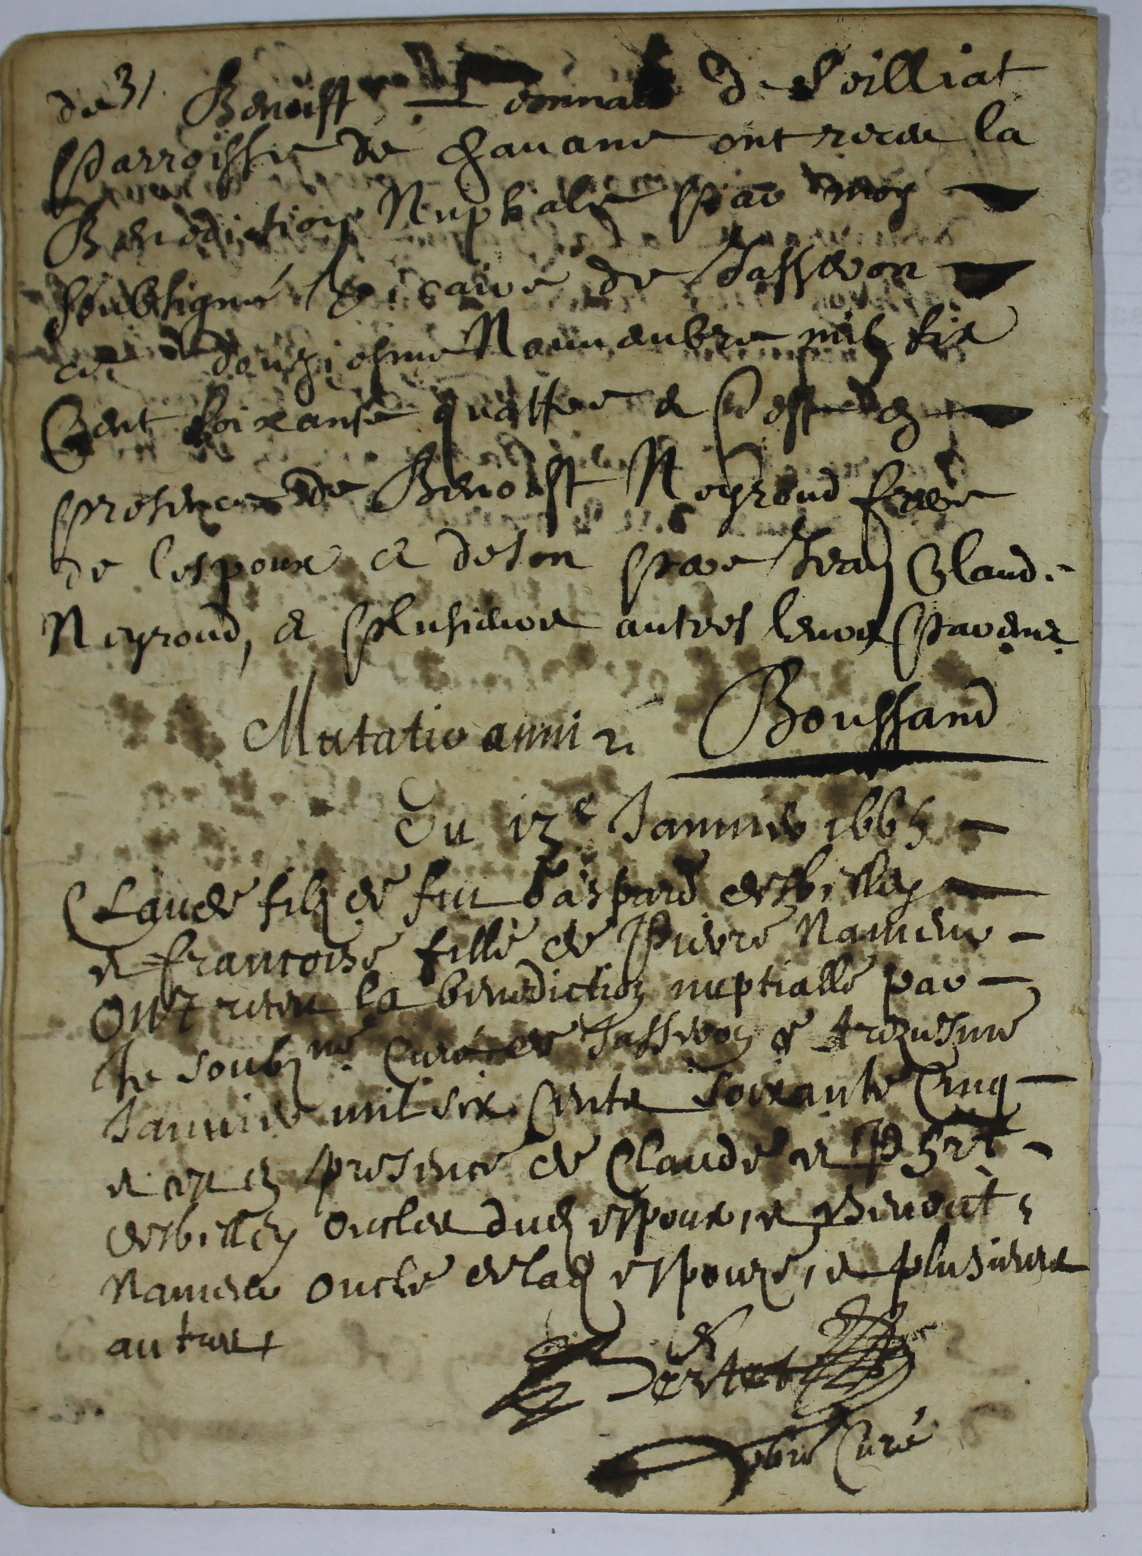 de Benoist Connas de Soilliat
parroisse de chavane ont receu la
Benediction Nuptiale par moy
soubsigné vicaire de Jasseron
ce douziesme Nouvembre mil six
Cent soixante quattre & c'est en
presence de Benoist Neyroud frere
de l'espoux & de son pere Jean Claude
Neyroud, & plusieurs autres leurs parens
Mutatio anni Boussand
Du 13e Januier 1665
Claude filz de feu Gaspard
& francoise fille de Pierre Nameur
Ont receu la benediction nuptialle par
Je soubsne Curé de Jasseron ce trezиesme
Januier mil six Cents soixante Cinq
et ce en presence de Claude et
oncles dud espoux, et Benoit
Nameur oncle de lad espouze, et plusieurs
autres
Curé